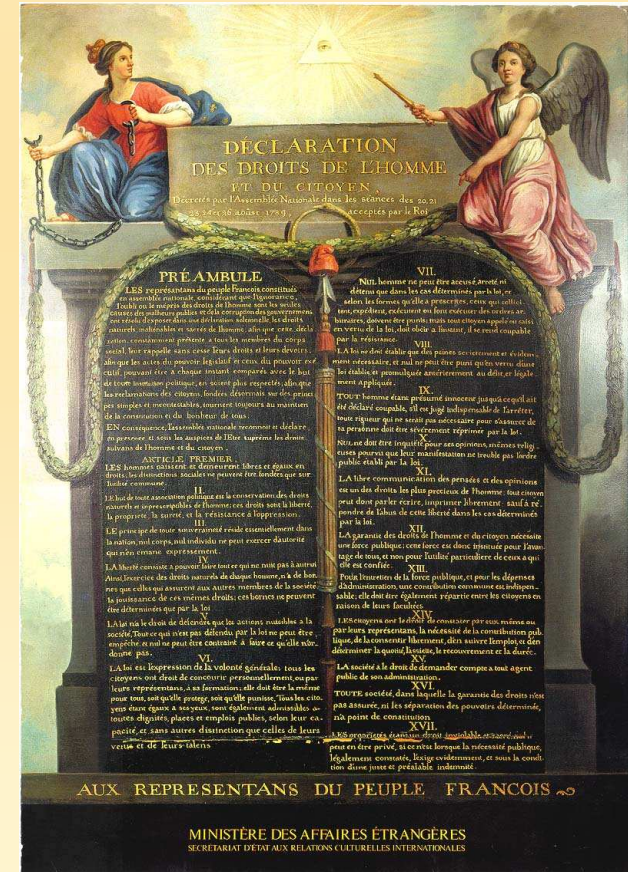 DÉCLARATION
DES DROITS DE L'HOMME
ET DU CITOYEN,
Décrétés par l'Assemblée Nationale dans les séances des 20, 21
23, 24 et 26 août 1789, acceptés par le Roi
PRÉAMBULE
LES représentans du peuple François, constitués
en assemblée nationale, considérant que l'ignorance,
l'oubli ou le mépris des droits de l'homme sont les seules
causes des malheurs publics et de la corruption des gouvernemens
ont résolu d'exposer dans une déclaration solennelle, les droits
naturels, inaliénables et sacrés de l'homme; afin que cette décla
ration, constamment présente a tous les membres du corps
social, leur rappelle sans cesse leurs droits et leurs devoirs;
afin que les actes du pouvoir législatif et ceux du pouvoir exé
cutif, pouvant être a chaque instant comparés avec le but
de toute institution politique, en soient plus respectés; afin que
les reclamations des citoyens, fondées désormais sur des princi
pes simples et incontestables, tournent toujours au maintien
de la constitution et du bonheur de tous.
EN conséquence, l'assemblée nationale reconnoit et déclare
en presence et sous les auspices de l'Etre suprême les droits
suivans de l'homme et du citoyen.
ARTICLE PREMIER.
LES hommes naissent et demeurent libres et égaux en
droits; les distinctions sociales ne peuvent être fondées que sur
l'utilité commune.
II.
LE but de toute association politique est la conservation des droits
naturels et imprescriptibles de l'homme; ces droits sont la liberté,
la propriété, la sureté, et la résistance à l'oppression.
III.
LE principe de toute souveraineté réside essentiellement dans
la nation, nul corps, nul individu ne peut exercer d'autorité
qui n'en émane expressement.
IV.
LA liberté consiste a pouvoir faire tout ce qui ne nuit pas à autrui
Ainsi, l'exercice des droits naturels de chaque homme, n'a de bor-
nes que celles qui assurent aux autres membres de la société
la jouissance de ces mêmes droits; ces bornes ne peuvent
être déterminées que par la loi
V.
LA loi n'a le droit de défendre que les actions nuisibles a la
société. Tout ce qui n'est pas défendu par la loi ne peut être
empêché, et nul ne peut être contraint à faire ce qu'elle n'or-
donne pas.
VI.
LA loi est l'expression de la volonté générale; tous les
citoyens ont droit de concourir personnellement, ou par
leurs représentans, à sa formation; elle doit être la même
pour tous, soit qu'elle protege, soit qu'elle punisse. Tous les cito-
yens étant égaux a ses yeux, sont également admissibles a
toutes dignités, places et emplois publics, selon leur ca-
pacité, et sans autres distinction que celles de leurs
vertus et de leurs talens
VII.
NUL homme ne peut être accusé, arreté, ni
détenu que dans les cas déterminés par la loi, et
selon les formes qu'elle a prescrites, ceux qui sollici-
tent, expédient, exécutent ou font exécuter des ordres ar-
bitraires, doivent être punis; mais tout citoyen appelé ou saisi
en vertu de la loi, doit obéir a l'instant, il se rend coupable
par la résistance.
VIII.
LA loi ne doit établir que des peines strictement et évidem-
ment nécessaire, et nul ne peut être puni qu'en vertu d'une
loi établie, et promulguée antérierement au délit, et légale-
ment appliquée.
IX.
TOUT homme étant présumé innocent jusqu'a ce qu'il ait
été déclaré coupable, s'il est jugé indispensable de l'arrêter,
toute rigueur qui ne serait pas nécessaire pour s'assurer de
sa personne doit être sévèrement réprimée par la loi.
X.
NUL ne doit être inquiété pour ses opinions, mêmes religi-
euses pourvu que leur manifestation ne trouble pas l'ordre
public établi par la loi.
XI.
LA libre communication des pensées et des opinions
est un des droits les plus precieux de l'homme; tout citoyen
peut donc parler, écrire, imprimer librement; sauf à ré-
pondre de l'abus de cette liberté dans les cas déterminés
par la loi.
XII.
LA garantie des droits de l'homme et du citoyen nécessite
une force publique; cette force est donc instituée pour l'avan-
tage de tous, et non pour l'utilité particuliere de ceux a qui
elle est confiée.
XIII.
Pour l'entretien de la force publique, et pour les dépenses
d'administration, une contribution commune est indispen-
sable; elle doit être également répartie entre les citoyens en
raison de leurs facultées
XIV.
LES citoyens ont le droit de constater par eux même ou
par leurs représentans, la nécessité de la contribution pub-
lique, de la consentir librement, d'en suivre l'emploi, et d'en
déterminer la quotité, l'assiette, le recouvrement et la durée.
XV.
LA société a le droit de demander compte a tout agent
public de son administration.
XVI.
TOUTE société, dans laquelle la garantie des droits n'est
pas assurée, ni les séparation des pouvoirs déterminée,
n'a point de constitution
XVII.
LES propriétés étant un droit inviolable et sacré, nul ne
peut en être privé, si ce n'est lorsque la nécessité publique,
légalement constatée, l'exige evidemment, et sous la condi-
tion d'une juste et préalable indemnité.
AUX REPRESENTANS DU PEUPLE FRANCOIS
MINISTÈRE DES AFFAIRES ÉTRANGÈRES
SECRÉTARIAT D'ÉTAT AUX RELATIONS CULTURELLES INTERNATIONALES